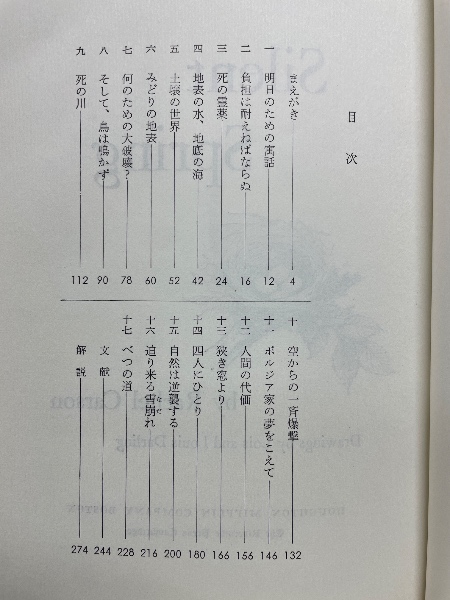 目次
まえがき 4
一 明日のための寓話 12
二 負担は耐えねばならぬ 16
三 死の霊薬 24
四 地表の水、地底の海 42
五 土壌の世界 52
六 みどりの地表 60
七 何のための大破壊？ 78
八 そして、鳥は鳴かず 90
九 死の川 112
十 空からの一斉爆撃 132
十一 ボルジア家の夢をこえて 146
十二 人間の代価 156
十三 狭き窓より 166
十四 四人にひとり 180
十五 自然は逆襲する 200
十六 迫り来る雪崩れ 216
なだ
十七 べつの道 228
文献 244
解説 274
Silent
Spring
by Rachel Carson
Drawings by Lois and Louis Darling